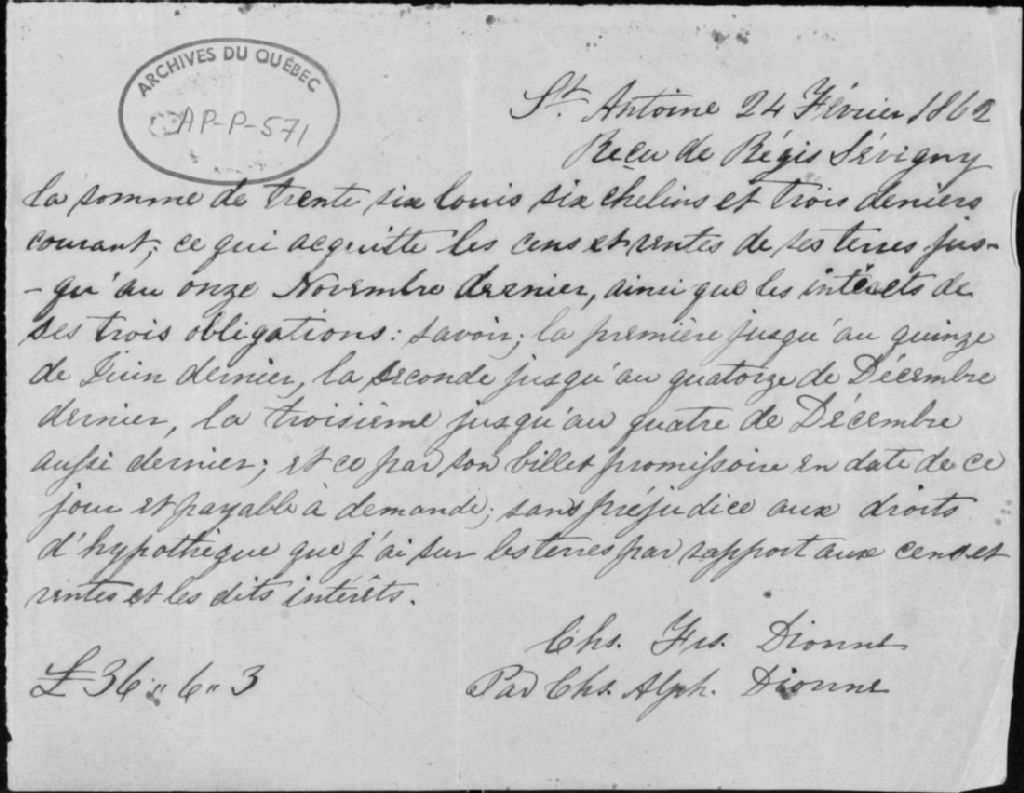 ARCHIVES DU QUÉBEC
AP-P-571
St. Antoine 24 Février 1862
Reçu de Régis Sévigny
la somme de trente six louis six chelins et trois deniers
courant; ce qui acquitte les cens et rentes de ses terres jus-
-qu'au onze Novembre dernier, ainsi que les intérêts de
ses trois obligations: savoir; la première jusqu'au quinze
de Juin dernier, la seconde jusqu'au quatorze de Décembre
dernier, la troisième jusqu'au quatre de Décembre
aussi dernier; et ce par son billet promissoire en date de ce
jour et payable à demande; sans préjudice aux droits
d'hypothèque que j'ai sur les terres par rapport aux cens et
rentes et les dits intérêts.
Chs. Frs. Dionne
£36 " 6 " 3
Par Chs. Alph. Dionne